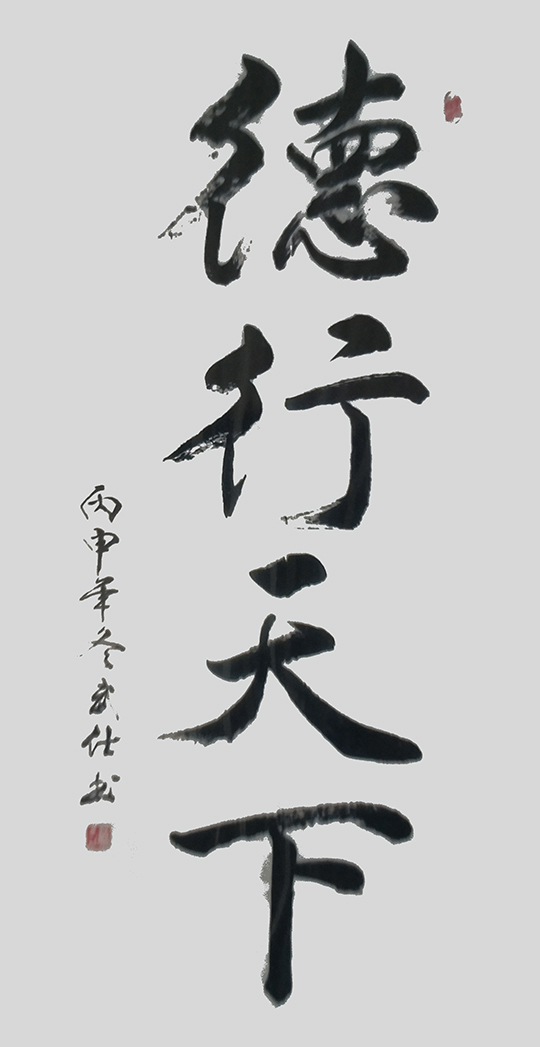 德行天下
丙申年冬武仕书